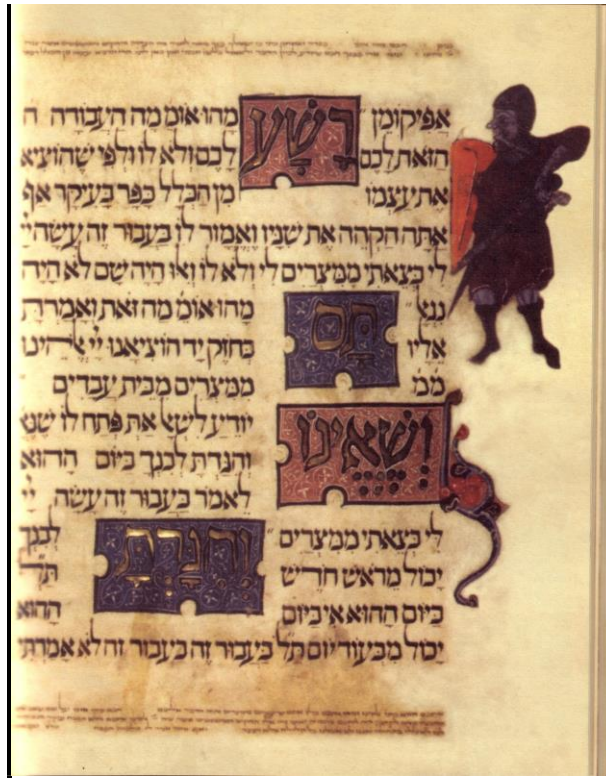 אפיקומן רָשָׁע מהו אומ מה העבודה ה
הזאת לכם לכם ולא לו ולפי שהוציא
את עצמו מן הכלל כפר בעיקר אף
אתה הקהה את שניו ואמור לו בעבור זה עשה יי
לי בצאתי ממצרים לי ולא לו ואו היה שם לא היה
נגא תָּם מהו אומ מה זאת ואמרת
אליו בחוזק יד הוציאנו יי
ממ ממצרים מבית עבדים
וְשֶׁאֵינוֹ יודע לשא את פתח לו שנא
והגדת לבנך ביום ההוא
לאמר בעבור זה עשה יי
לי בצאתי ממצרים וְהִגַּדְתָּ לבנך
יכול מראש חדש תל
ביום ההוא אי ביום ההוא
יכול מבעוד יום תל בעבור זה בעבור זה לא אמרתי